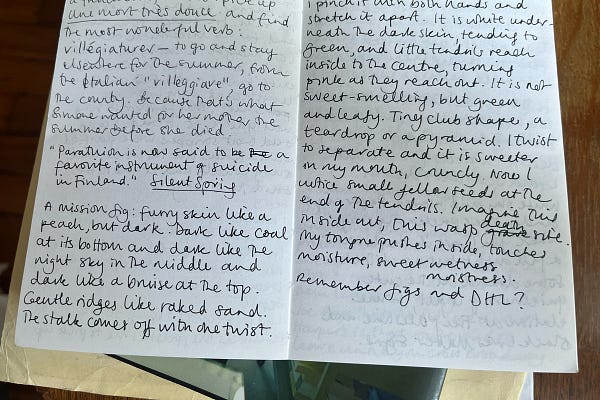 pick up
une mort très douce and find
the most wonderful verb:
villégiaturer – to go and stay
elsewhere for the summer, from
the Italian "villeggiare", go to
the county. Because that's what
Simone wanted for her mother the
summer before she died.
"Parathion is now said to be a
favorite instrument of suicide
in Finland." Silent Spring
A mission fig: furry skin like a
peach, but dark. Dark like coal
at its bottom and dark like the
night sky in the middle and
dark like a bruise at the top.
Gentle ridges like raked sand.
The stalk comes off with one twist.
I pinch it with both hands and
stretch it apart. It is white under-
neath the dark skin, tending to
green, and little tendrils reach
inside to the centre, turning
pink as they reach out. It is not
sweet-smelling, but green
and leafy. Tiny club shapes, a
teardrop or a pyramid. I twist
to separate and it is sweeter
in my mouth, crunchy. Now I
notice small yellow seeds at the
end of the tendrils. Imagine this
inside out, this wasp death grave site.
My tongue pushes inside, touches
moisture, sweet wetness
moistness.
Remember figs and DHL?